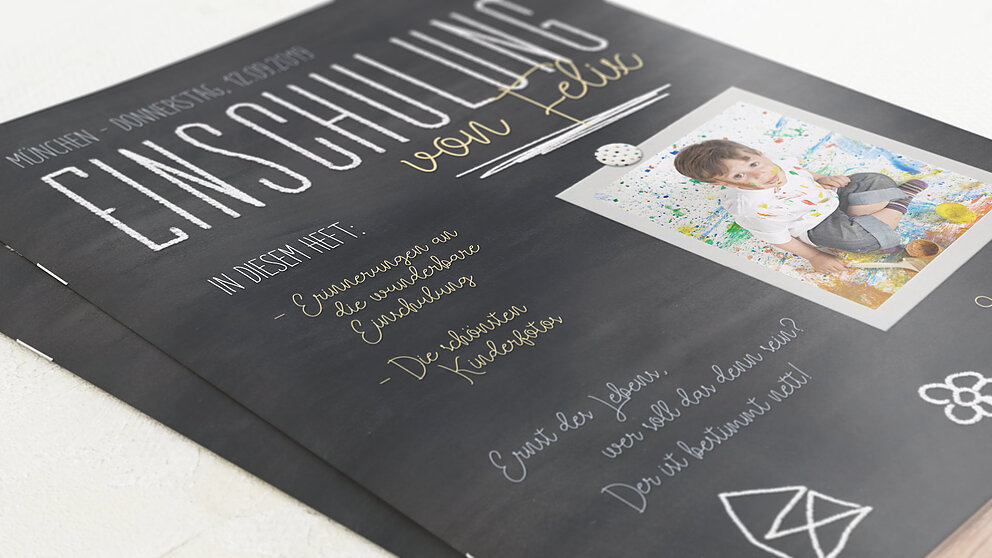 MÜNCHEN - DONNERSTAG, 12.09.2019
EINSCHULUNG
von Felix
IN DIESEM HEFT:
- Erinnerungen an
die wunderbare
Einschulung
- Die schönsten
Kinderfotos
Ernst des Lebens,
wer soll das denn sein?
Der ist bestimmt nett!